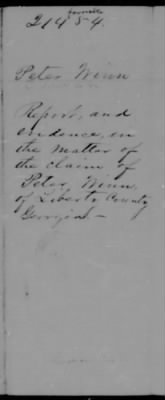 favorable
21454.
Peter Winn
Report, and
evidence, in
the matter of
the claim of
Peter Winn,
of Liberty County
Georgia.—